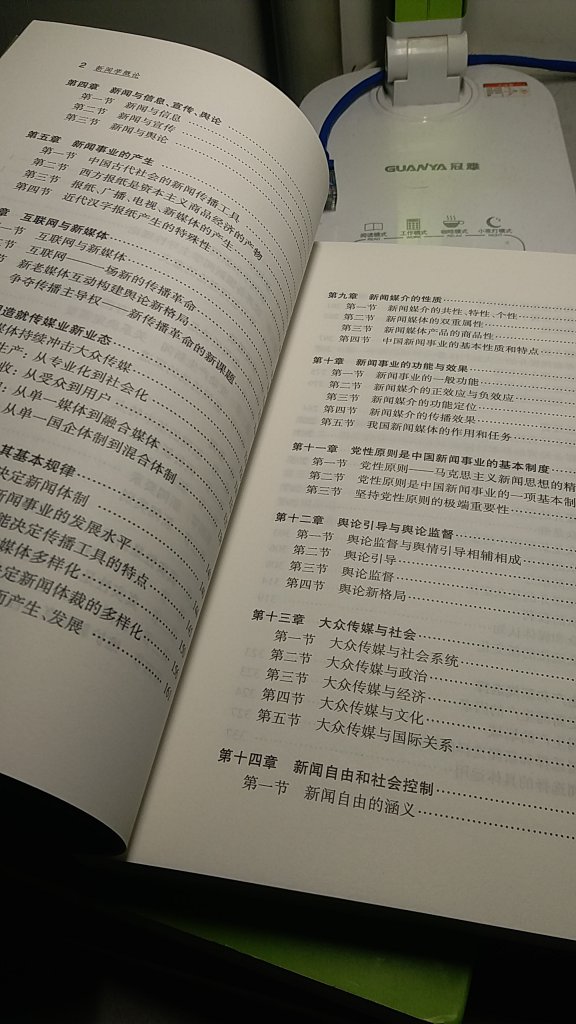 2 新闻学概论
第四章 新闻与信息、宣传、舆论
第一节 新闻与信息
第二节 新闻与宣传
第三节 新闻与舆论
第五章 新闻事业的产生
第一节 中国古代社会的新闻传播工具
第二节 西方报纸是资本主义商品经济的产物
第三节 报纸、广播、电视、新媒体的产生
第四节 近代汉字报纸产生的特殊性
章 互联网与新媒体
一节 互联网与新媒体
节 互联网——一场新的传播革命
节 新老媒体互动构建舆论新格局
争夺传播主导权——新传播革命的新课题
造就传媒业新业态
媒体持续冲击大众传媒
生产：从专业化到社会化
收：从受众到用户
：从单一媒体到融合媒体
从单一国企体制到混合体制
其基本规律
决定新闻体制
新闻事业的发展水平
能决定传播工具的特点
媒体多样化
定新闻体裁的多样化
而产生、发展
GUANYA 冠雅
阅读模式
工作模式
咖啡模式
小夜灯模式
第九章 新闻媒介的性质
第一节 新闻媒介的共性、特性、个性
第二节 新闻媒体的双重属性
第三节 新闻媒体产品的商品性
第四节 中国新闻事业的基本性质和特点
第十章 新闻事业的功能与效果
第一节 新闻事业的一般功能
第二节 新闻媒介的正效应与负效应
第三节 新闻媒介的功能定位
第四节 新闻媒介的传播效果
第五节 我国新闻媒体的作用和任务
第十一章 党性原则是中国新闻事业的基本制度
第一节 党性原则——马克思主义新闻思想的精
第二节 党性原则是中国新闻事业的一项基本制
第三节 坚持党性原则的极端重要性
第十二章 舆论引导与舆论监督
第一节 舆论监督与舆情引导相辅相成
第二节 舆论引导
第三节 舆论监督
第四节 舆论新格局
第十三章 大众传媒与社会
第一节 大众传媒与社会系统
第二节 大众传媒与政治
第三节 大众传媒与经济
第四节 大众传媒与文化
第五节 大众传媒与国际关系
第十四章 新闻自由和社会控制
第一节 新闻自由的涵义